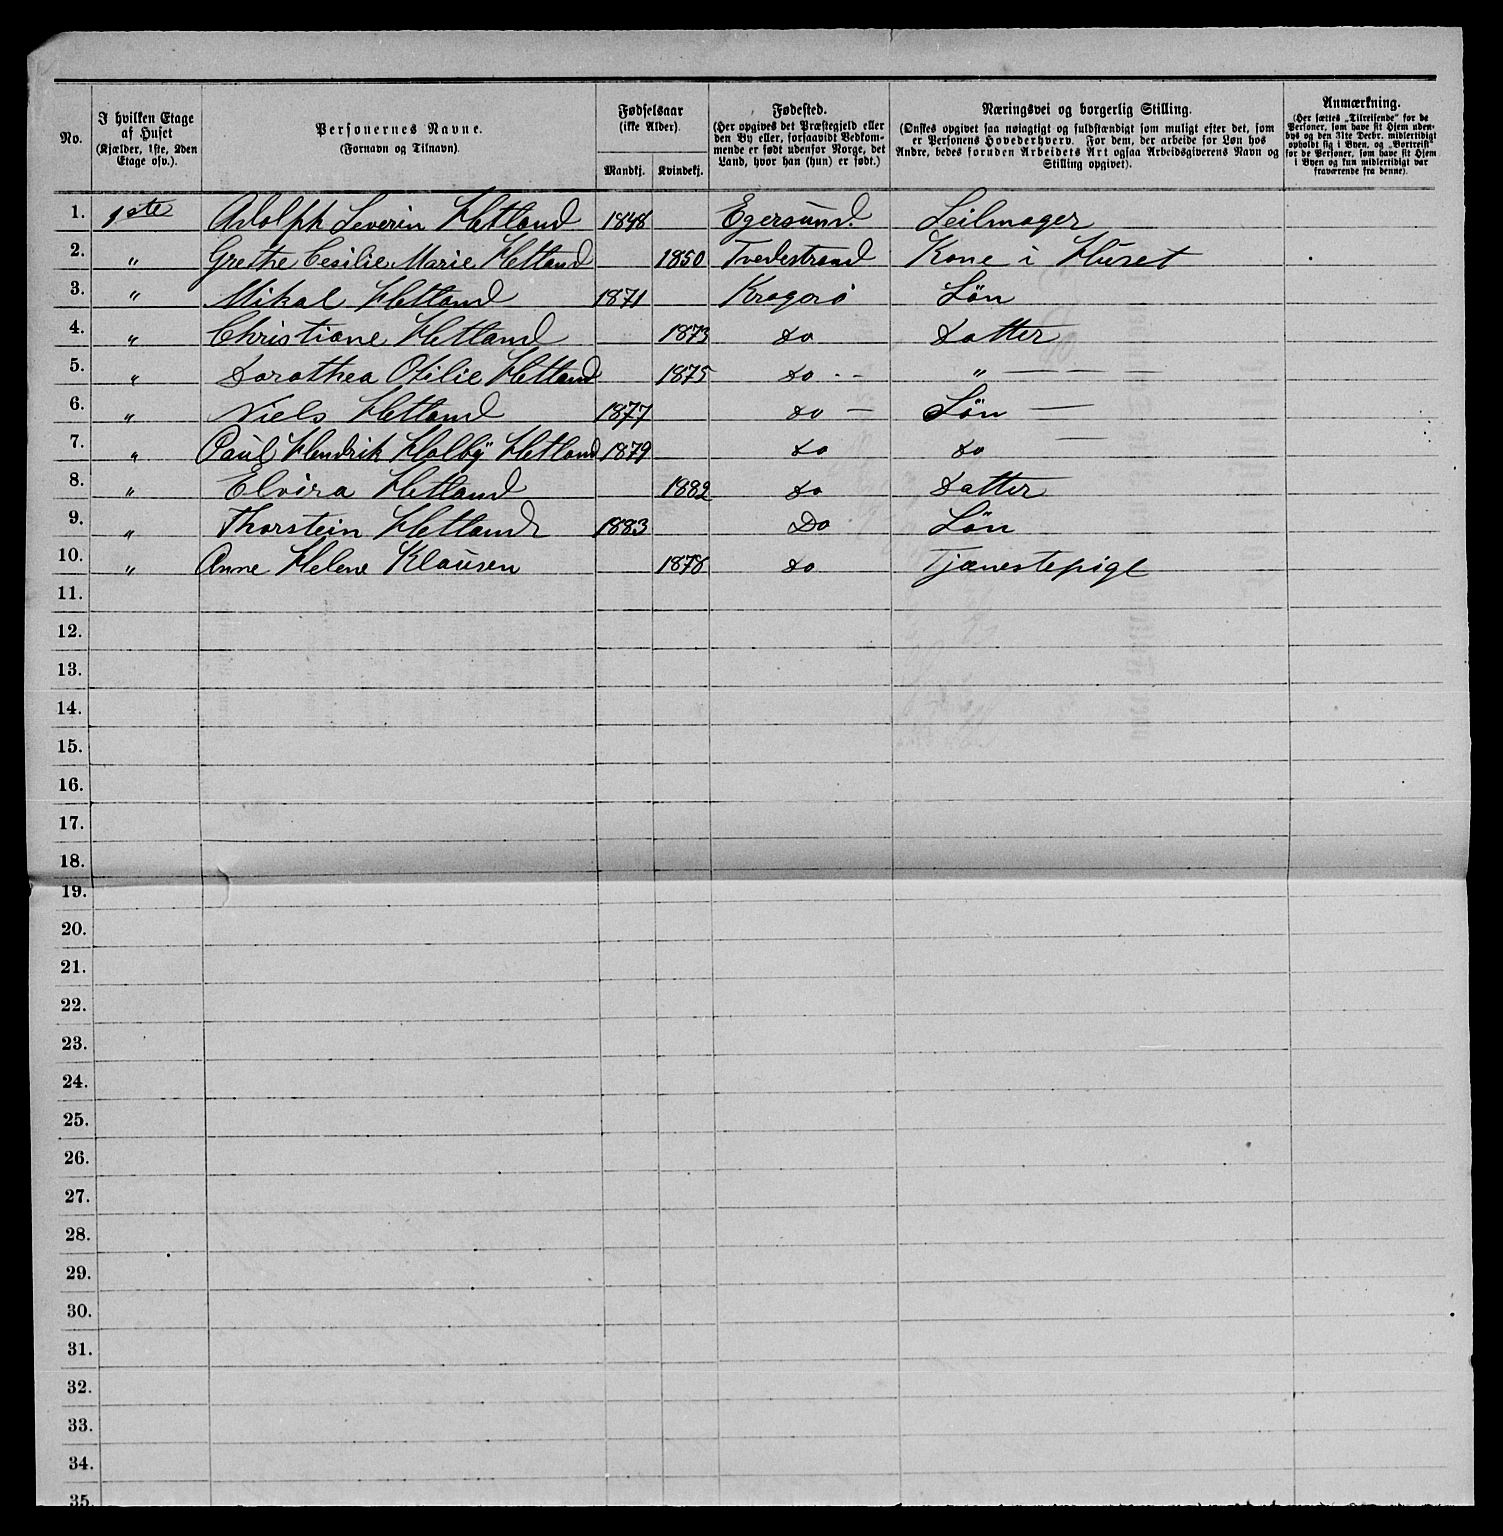 No. | I hvilken Etage af Huset (Kjælder, 1ste, 2den Etage osv.). | Personernes Navne. (Fornavn og Tilnavn). | Fødselsaar (ikke Alder). Mandkj. | Kvindekj. | Fødested. (Her opgives det Præstegjeld eller den By eller, forsaavidt Vedkommende er født udenfor Norge, det Land, hvor han (hun) er født.) | Næringsvei og borgerlig Stilling. (Ønskes opgivet saa nøiagtigt og fuldstændigt som muligt efter det, som er Personens Hovederhverv. For dem, der arbeide for Løn hos Andre, bedes foruden Arbeidets Art ogsaa Arbeidsgiverens Navn og Stilling opgivet). | Anmærkning. (Her sættes „Tilreisende“ for de Personer, som have sit Hjem udenbys og den 31te Decbr. midlertidigt opholdt sig i Byen, og „Bortreist“ for de Personer, som have sit Hjem i Byen og kun midlertidigt var fraværende fra denne).
1. 1ste Adolph Severin Hetland 1848 Egersund. Seilmager
2. „ Grethe Cesilie Marie Hetland 1850 Tvedestrand Kone i Huset
3. „ Mikal Hetland 1871 Kragerø Søn
4. „ Christiane Hetland 1873 do Datter
5. „ Dorothea Otilie Hetland 1875 do - - „ — — — —
6. „ Niels Hetland 1877 do — Søn —
7. „ Paul Hendrik Holby Hetland 1879 do do —
8. „ Elvira Hetland 1882 do Datter
9. „ Thorstein Hetland 1883 Do Søn
10. „ Anne Helene Klausen 1878 do Tjænestepige
11.
12.
13.
14.
15.
16.
17.
18.
19.
20.
21.
22.
23.
24.
25.
26.
27.
28.
29.
30.
31.
32.
33.
34.
35.